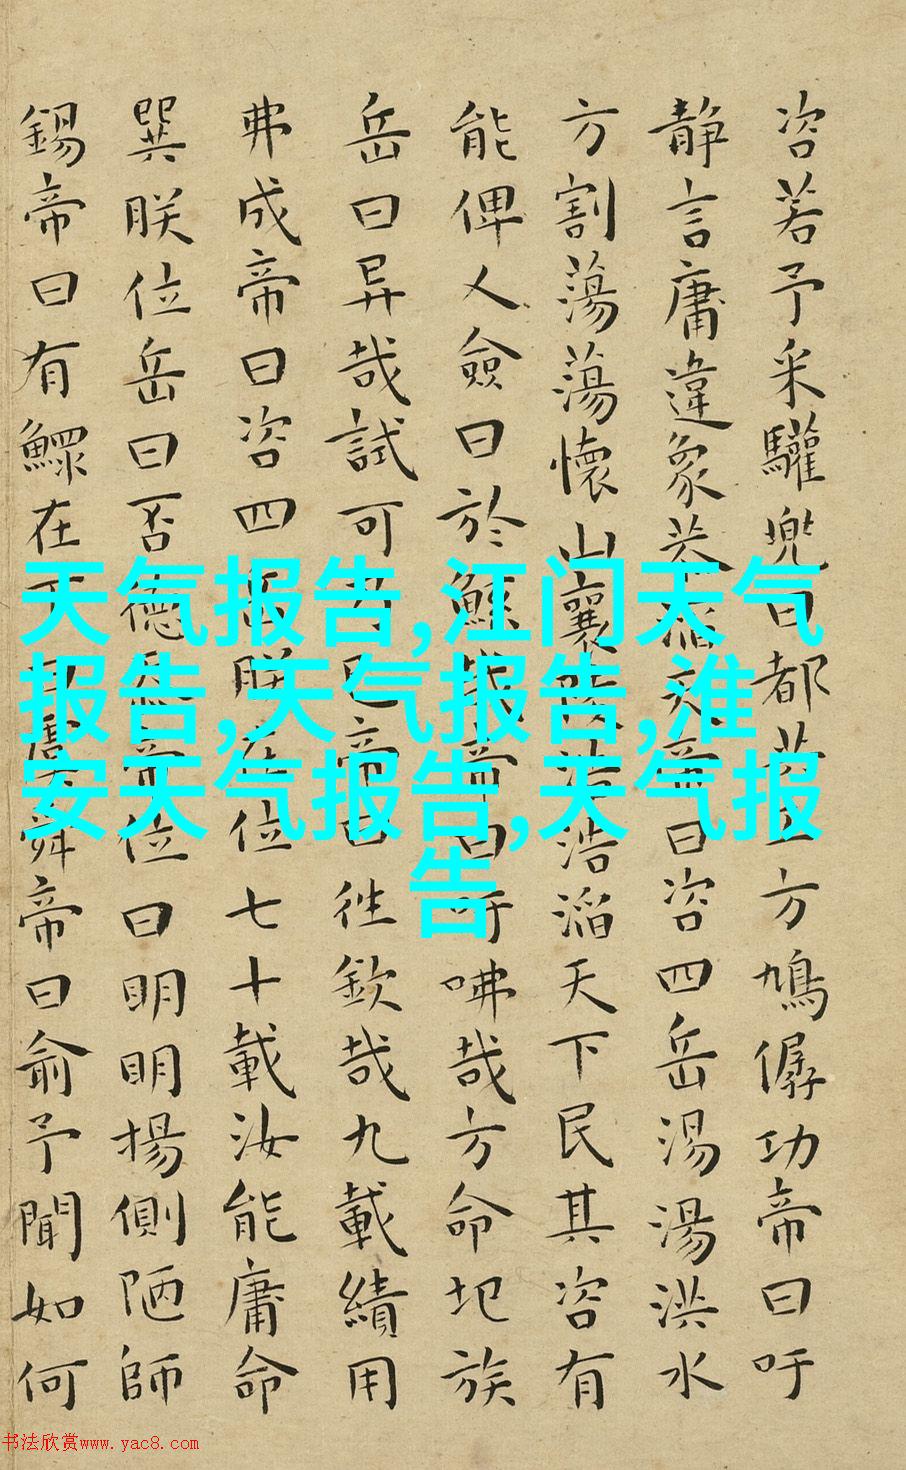 咨若予采驩兜曰都共工方鳩僝功帝曰吁
静言庸違象恭滔天帝曰咨四岳湯湯洪水
方割蕩蕩懷山襄陵浩浩滔天下民其咨有
能俾乂僉曰於鯀哉帝曰吁咈哉方命圮族
岳曰异哉試可乃已帝曰往欽哉九載績用
弗成帝曰咨四岳朕在位七十載汝能庸命
巽朕位岳曰否德忝帝位曰明明揚側陋師
錫帝曰有鰥在下曰虞舜帝曰俞予聞如何
天气报告,江门天气
报告,天气报告,淮
安天气报告,天气报
告
书法欣赏www.yac8.com